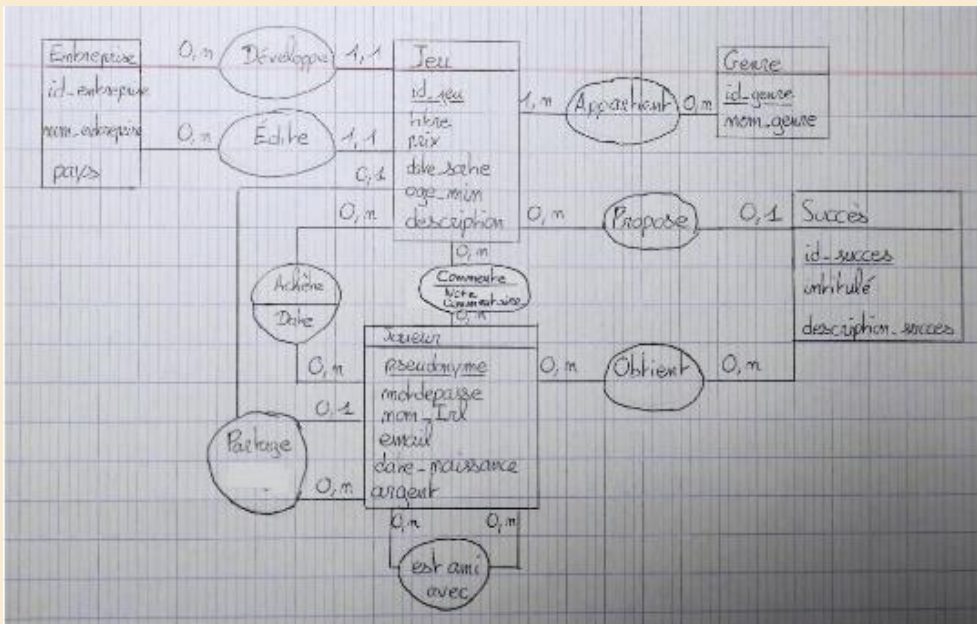 Entreprise
id_entreprise
nom_entreprise
pays
0,n
Développe
1,1
0,n
Édite
1,1
Jeu
id_jeu
titre
prix
date_sortie
age_min
description
1,n
Appartient
0,n
Genre
id_genre
nom_genre
0,1
0,n
0,n
Propose
0,1
Succès
id_succes
intitulé
description_succes
Achète
Date
0,n
Commente
Note
Commentaire
0,n
Joueur
pseudonyme
motdepasse
nom_Irl
email
date_naissance
argent
0,n
0,n
Obtient
0,n
0,1
Partage
0,n
0,n
0,n
est ami
avec